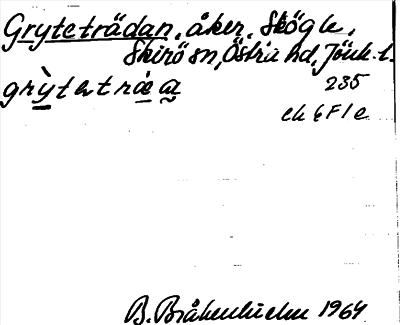 Gryteträdan, åker, Skögle,
Skirö sn, Östra hd, Jönk. l.
235
ek 6F1e
B. Bråkenhielm 1964